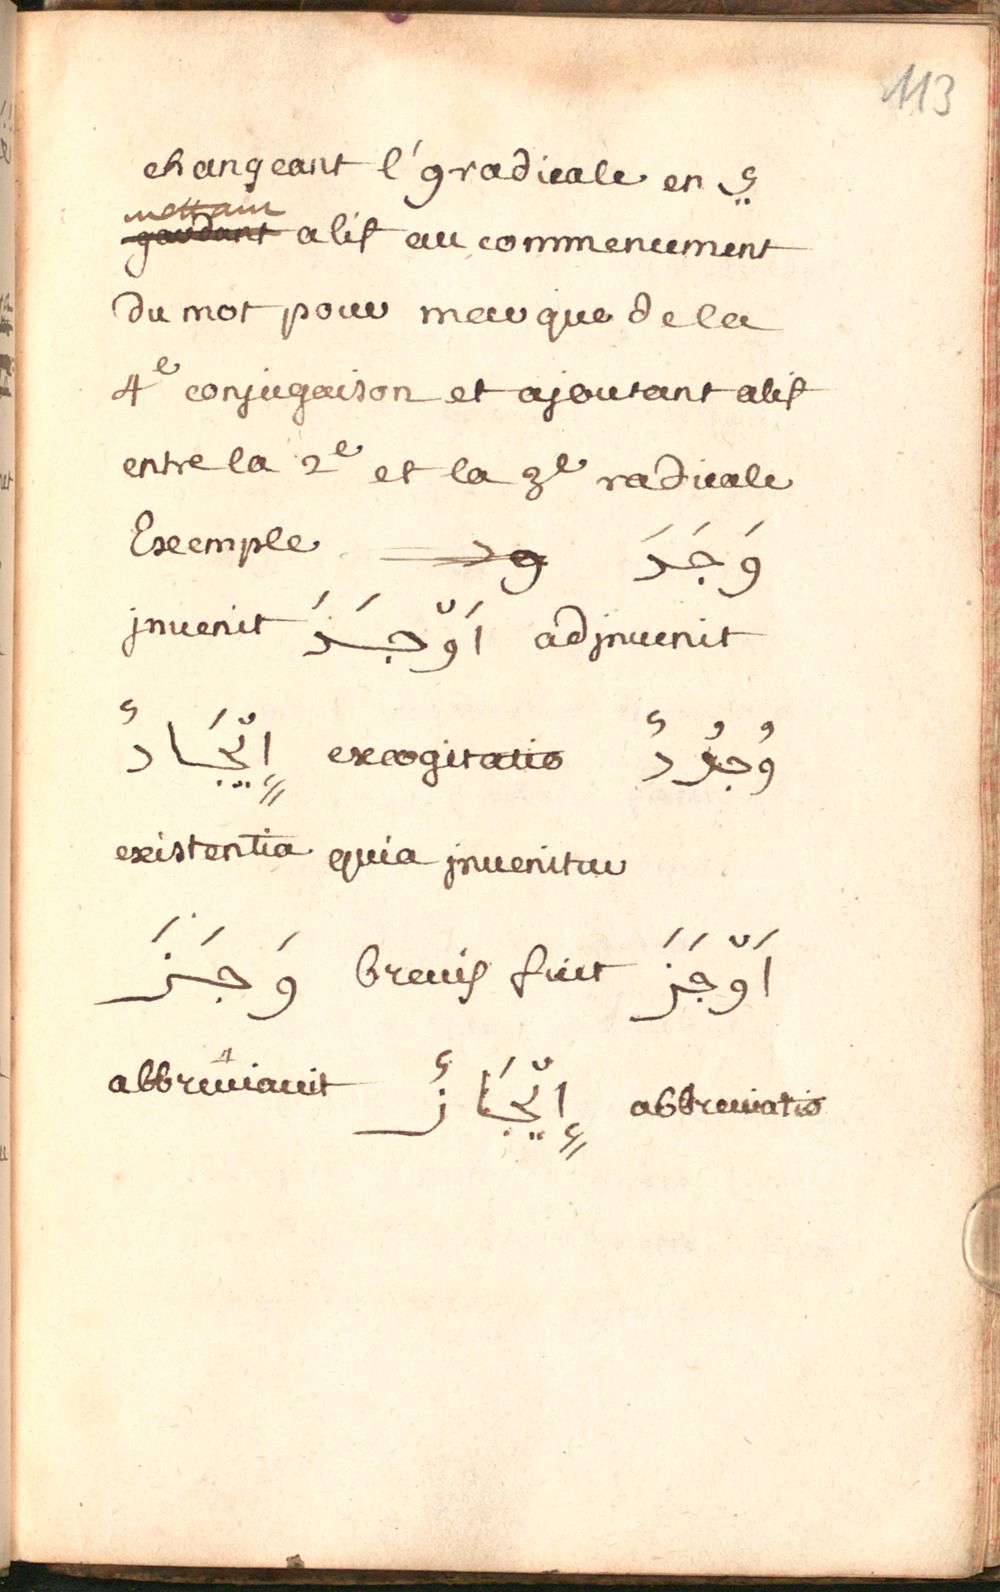 113
changeant l'و radicale en ي
mettant
gardant alif au commencement
du mot pour marque de la
4e conjugaison et ajoutant alif
entre la 2e et la 3e radicale
Exemple وَجَدَ
jnuenit اَوْجَدَ adjnuenit
إِيْجَادٌ excogitatio وُجُودٌ
existentia quia jnuenitur
وَجَزَ breuis fuit اَوْجَزَ
abbreuiauit إِيْجَازٌ abbreuiatio